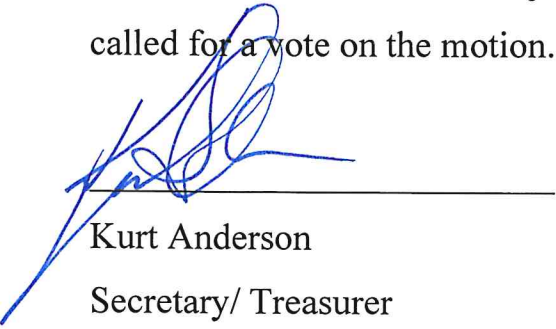 called for a vote on the motion.
Kurt Anderson
Secretary/ Treasurer